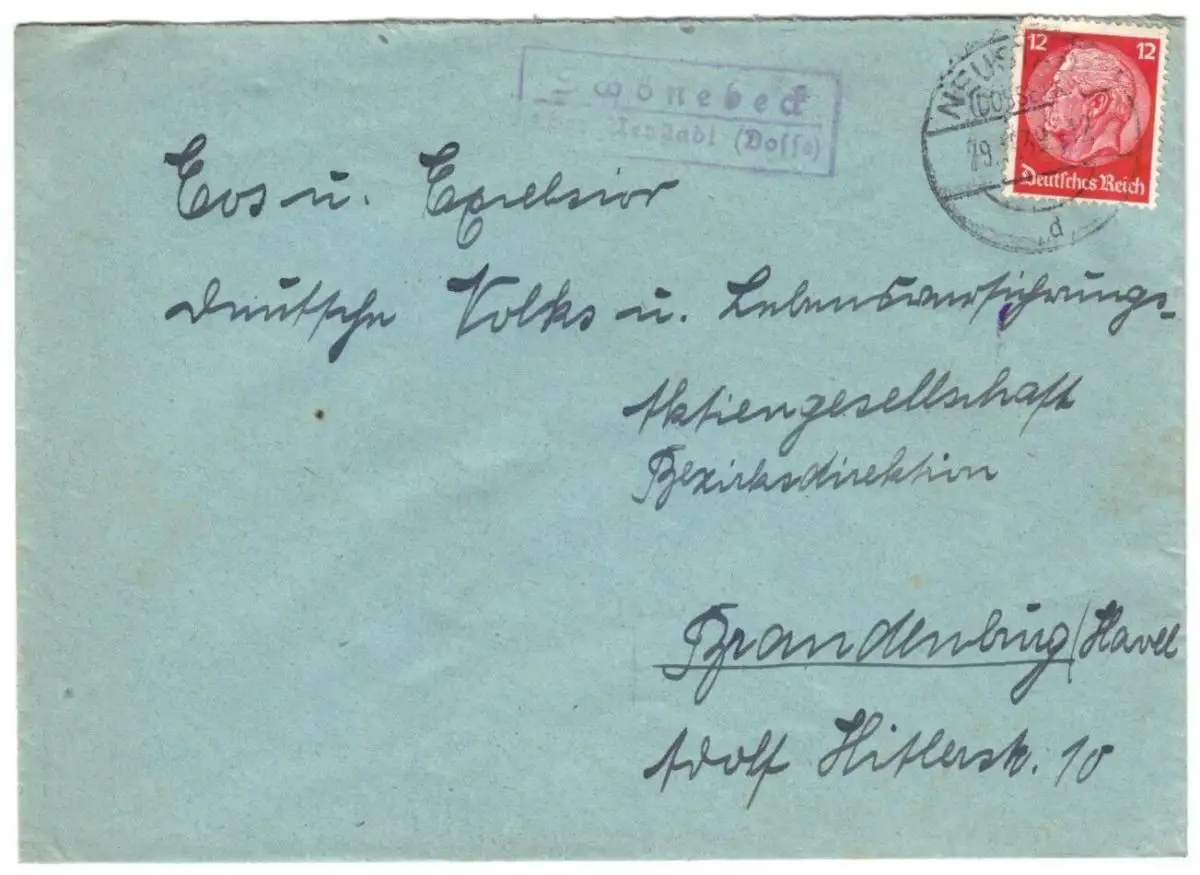 Schönebeck
über Neustadt (Dosse)
NEUS
(DOSSE)
12 12
Deutsches Reich
d
Eos u. Excelsior
deutsche Volks u. Lebensversichrungs-
Aktiengesellschaft
Bezirksdirektion
Brandenburg/Havel
Adolf Hitlerstr. 10